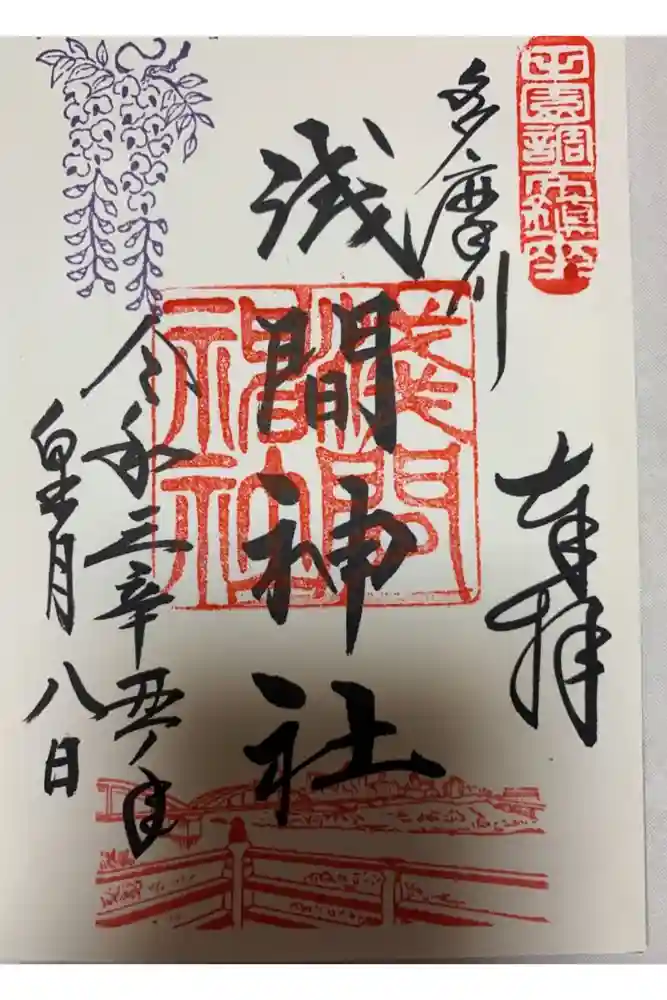 田園調布鎮座
奉拝
多摩川
浅間神社
淺間神社
令和三辛丑ノ年
皐月八日